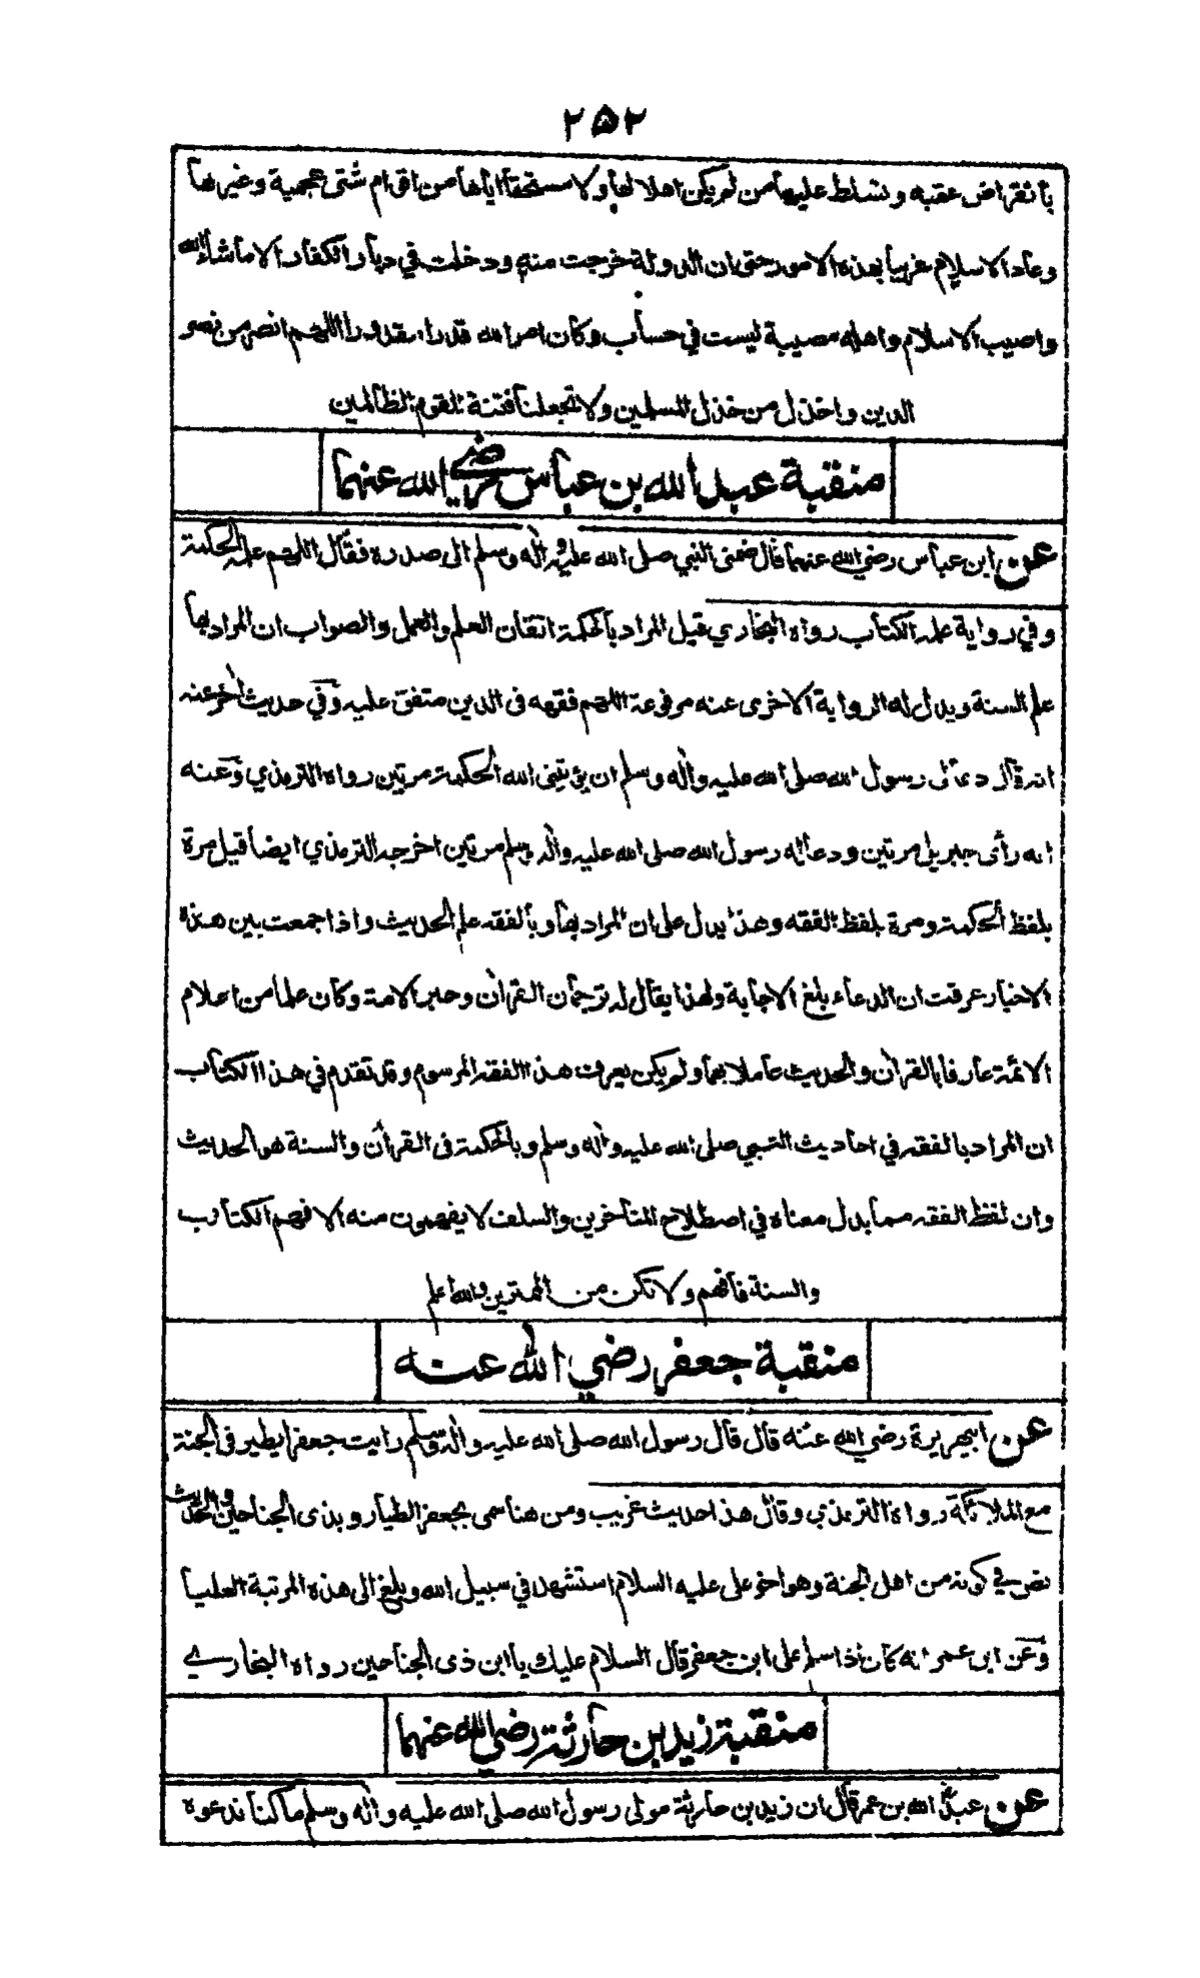 ۲۵۲
بانقراض عقبه وتسلط عليها من لم يكن اهلا لها ولا مستحقا اياها من اقوام شتى عجمية وغيرها
وعاد الاسلام غريبا بهذه الامور حتى ان الدولة خرجت منه ودخلت في ديار الكفار الا ماشاء الله
واصيب الاسلام واهله مصيبة ليست في حساب وكان امر الله قدرا مقدورا اللهم انصر من نصر
الدين واخذل من خذل المسلمين ولا تجعلنا فتنة للقوم الظالمين
منقبة عبد الله بن عباس رضي الله عنهما
عن ابن عباس رضي الله عنهما قال ضمني النبي صلى الله عليه واله وسلم الى صدره فقال اللهم علمه الحكمة
وفي رواية علمه الكتاب رواه البخاري قيل المراد بالحكمة اتقان العلم والعمل والصواب ان المراد بها
علم السنة ويدل له الرواية الاخرى عنه مرفوعة اللهم فقهه فى الدين متفق عليه وفي حديث اخر عنه
انه قال دعا لى رسول الله صلى الله عليه واله وسلم ان يؤتيني الله الحكمة مرتين رواه الترمذي وعنه
انه رأى جبريل مرتين ودعا له رسول الله صلى الله عليه واله وسلم مرتين اخرجه الترمذي ايضا قيل مرة
بلفظ الحكمة ومرة بلفظ الفقه وهذا يدل على ان المراد بها وبالفقه علم الحديث واذا جمعت بين هذه
الاخبار عرفت ان الدعاء بلغ الاجابة ولهذا يقال له ترجمان القران وحبر الامة وكان علما من اعلام
الائمة عارفا بالقران والحديث عاملا بهما ولم يكن يعرف هذا الفقه المرسوم وقد تقدم في هذا الكتاب
ان المراد بالفقه في احاديث النبي صلى الله عليه واله وسلم وبالحكمة فى القرآن والسنة هو الحديث
وان لفظ الفقه مما بدل معناه في اصطلاح المتاخرين والسلف لا يفهمون منه الا فهم الكتاب
والسنة فافهم ولا تكن من الممترين والله اعلم
منقبة جعفر رضي الله عنه
عن ابيهريرة رضي الله عنه قال قال رسول الله صلى الله عليه واله وسلم رايت جعفرا يطير فى الجنة
مع الملائكة رواه الترمذي وقال هذا حديث غريب ومن هنا سمى بجعفر الطيار وبذى الجناحين والحديث
نص في كونه من اهل الجنة وهو اخو على عليه السلام استشهد في سبيل الله وبلغ الى هذه المرتبة العليا
وعن ابن عمر انه كان اذا سلم على ابن جعفر قال السلام عليك يا ابن ذى الجناحين رواه البخاري
منقبة زيد بن حارثة رضي الله عنهما
عن عبد الله بن عمر قال ان زيد بن حارثة مولى رسول الله صلى الله عليه واله وسلم ما كنا ندعوه